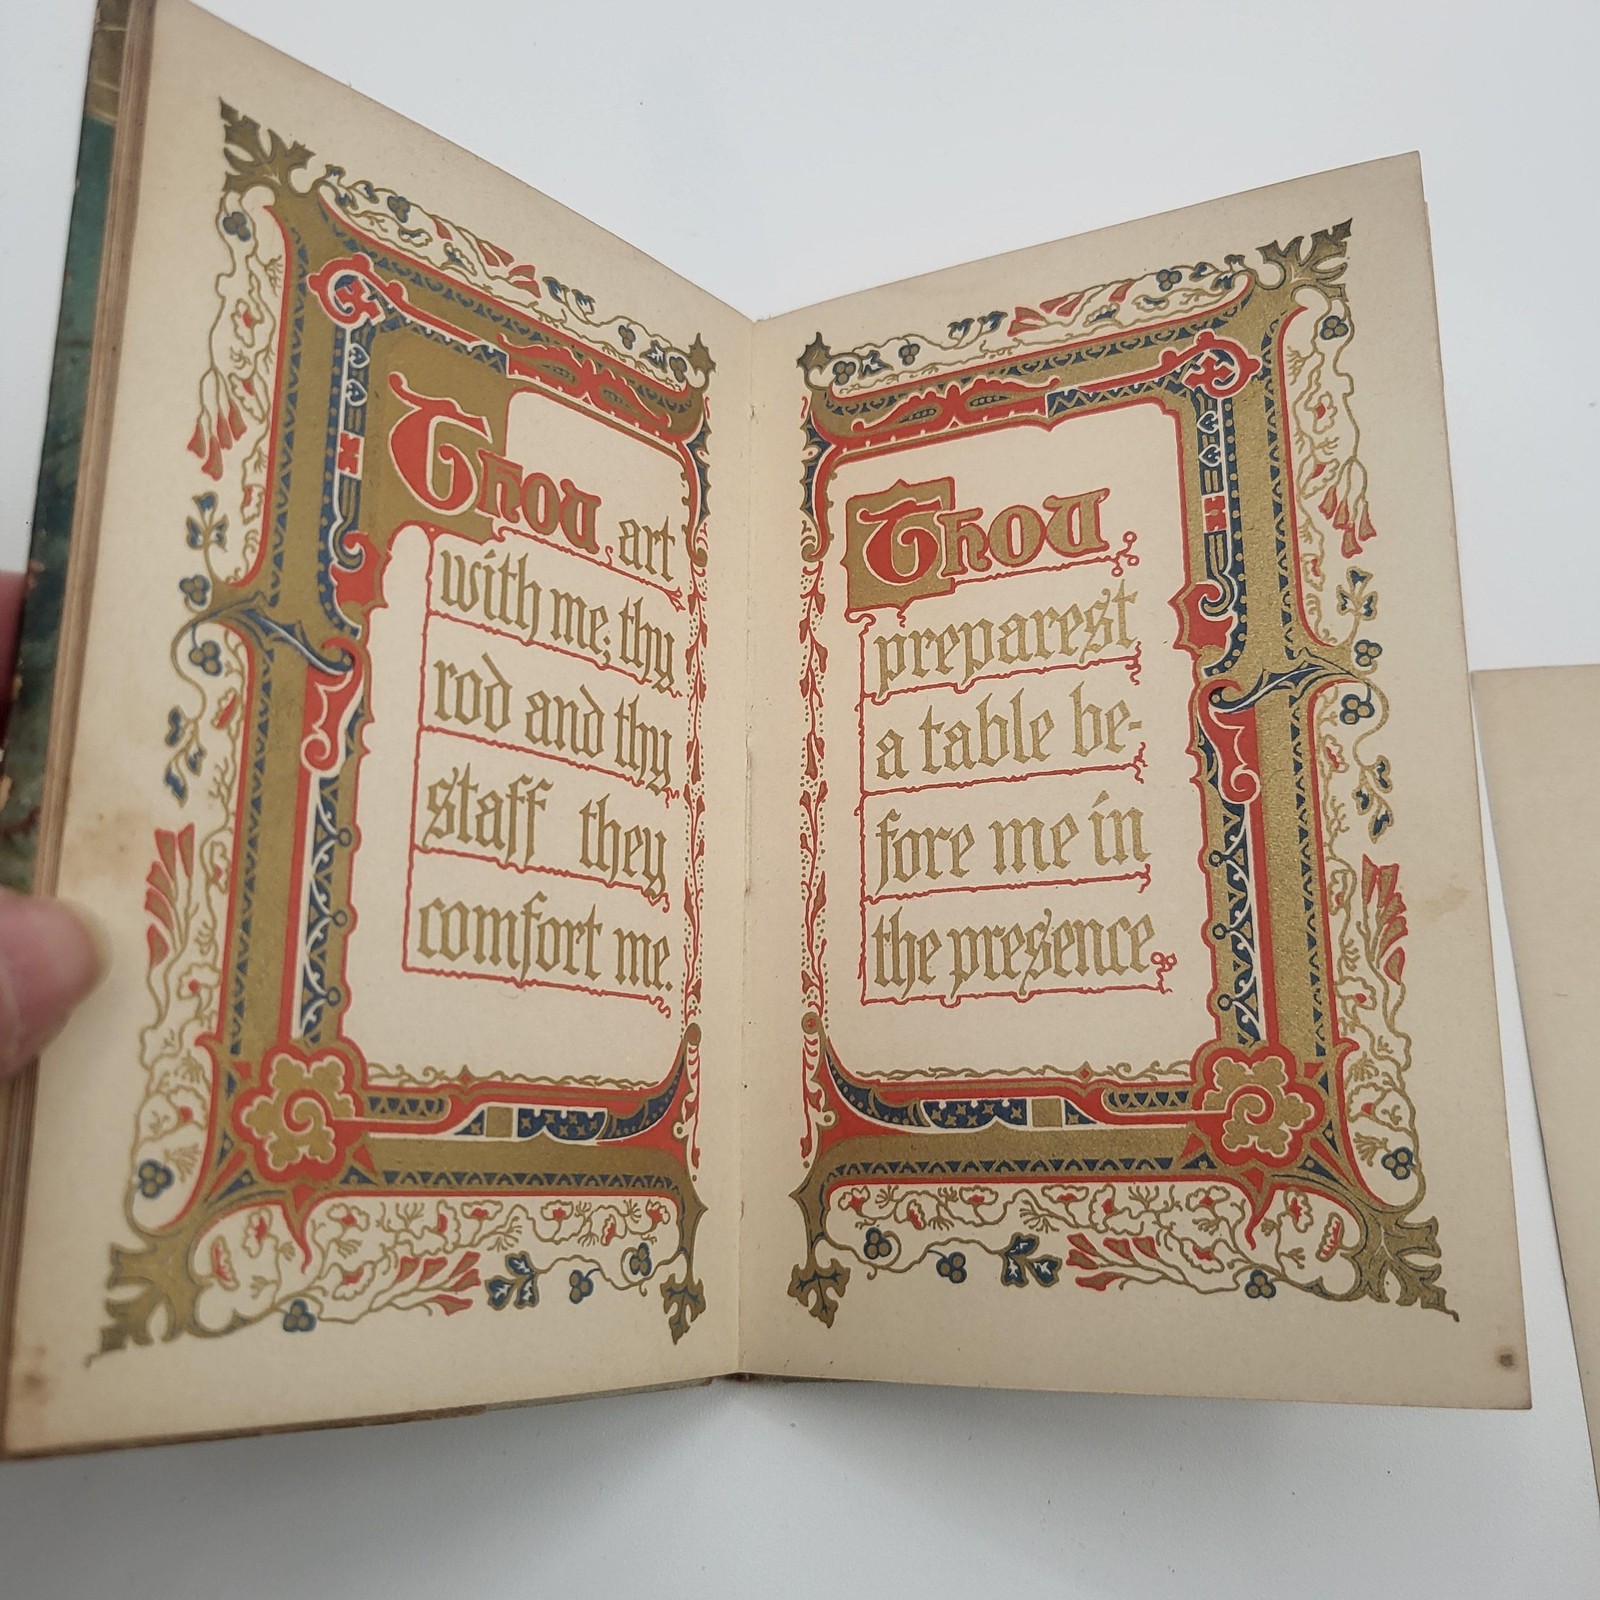 Thou art
with me; thy
rod and thy
staff they
comfort me.
Thou
preparest
a table be-
fore me in
the presence